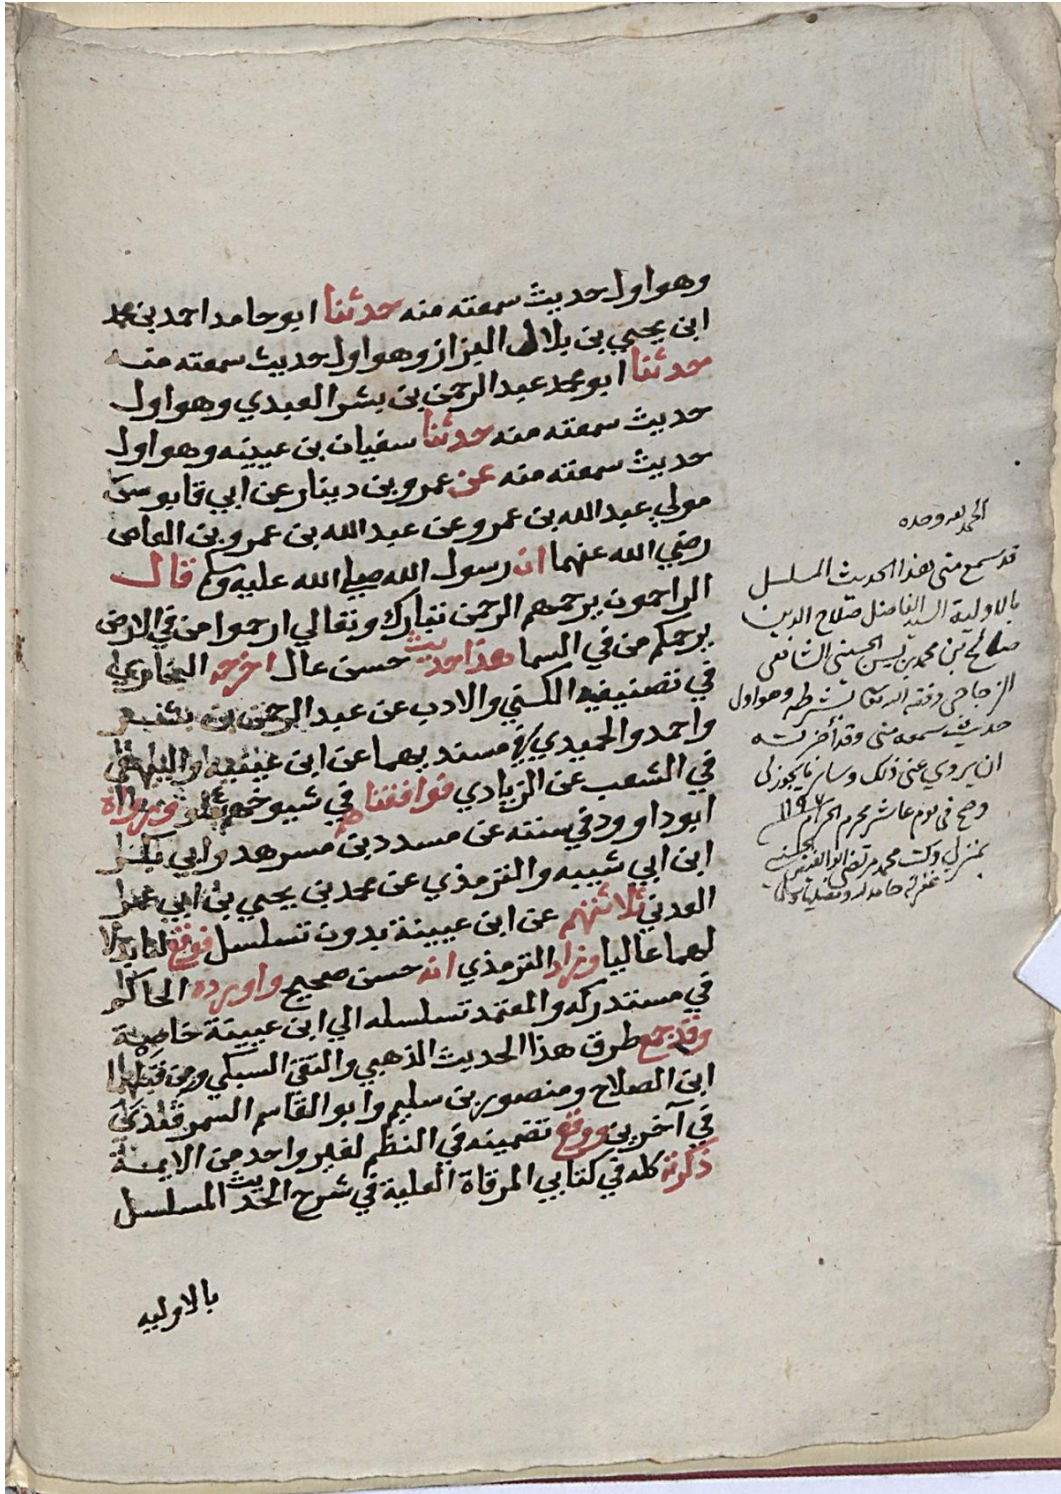 وهو اول حديث سمعته منه حدثنا ابو حامد احمد بن محمد
ابن يحيي بن بلال البزاز وهو اول حديث سمعته منه
حدثنا ابو محمد عبد الرحمن بن بشر العبدي وهو اول
حديث سمعته منه حدثنا سفيان بن عيينه وهو اول
حديث سمعته منه عن عمرو بن دينار عن ابي قابوس
مولي عبد الله بن عمرو عن عبد الله بن عمرو بن العاص
رضي الله عنهما ان رسول الله صلي الله عليه وسلم قال
الراحمون يرحمهم الرحمن تبارك وتعالي ارحموا من في الارض
يرحمكم من في السما هذا حديث حسن عال اخرجه البخاري
في تصنيفيه الكني والادب عن عبد الرحمن بن بشر
واحمد والحميدي في مسنديهما عن ابن عيينه والبيهقي
في الشعب عن الزيادي فوافقناهم في شيوخهم ورواه
ابو داوود في سننه عن مسدد بن مسرهد وابي بكر
ابن ابي شيبه والترمذي عن محمد بن يحيي بن ابي عمر
العدني ثلاثتهم عن ابن عيينة بدون تسلسل فوقع لنا بدلا
لهما عاليا وزاد الترمذي انه حسن صحيح واورده الحاكم
في مستدركه والمعتمد تسلسله الي ابن عيينة خاصة
وقد جمع طرق هذا الحديث الذهبي والتقي السبكي ومن قبلهما
ابن الصلاح ومنصور بن سليم وابو القاسم السمرقندي
في آخرين ووقع تضمينه في النظم لغير واحد من الايمة
ذكرته كله في كتابي المرقاة العلية في شرح الحديث المسلسل
بالاوليه
الحمد لله وحده
قد سمع مني هذا الحديث المسلسل
بالاولية السيد الفاضل صلاح الدين
صالح بن محمد بن يسن الحسيني الشافعي
الزجاجي وفقه الله تعالى بشرطه وهو اول
حديث سمعه مني وقد أجزت له
ان يروي عني ذلك وسائر ما يجوز لي
وصح في يوم عاشر محرم الحرام
بمنزلي وكتب محمد مرتضى ابو الفيض الحسيني
غفر له حامدا لله ومصليا